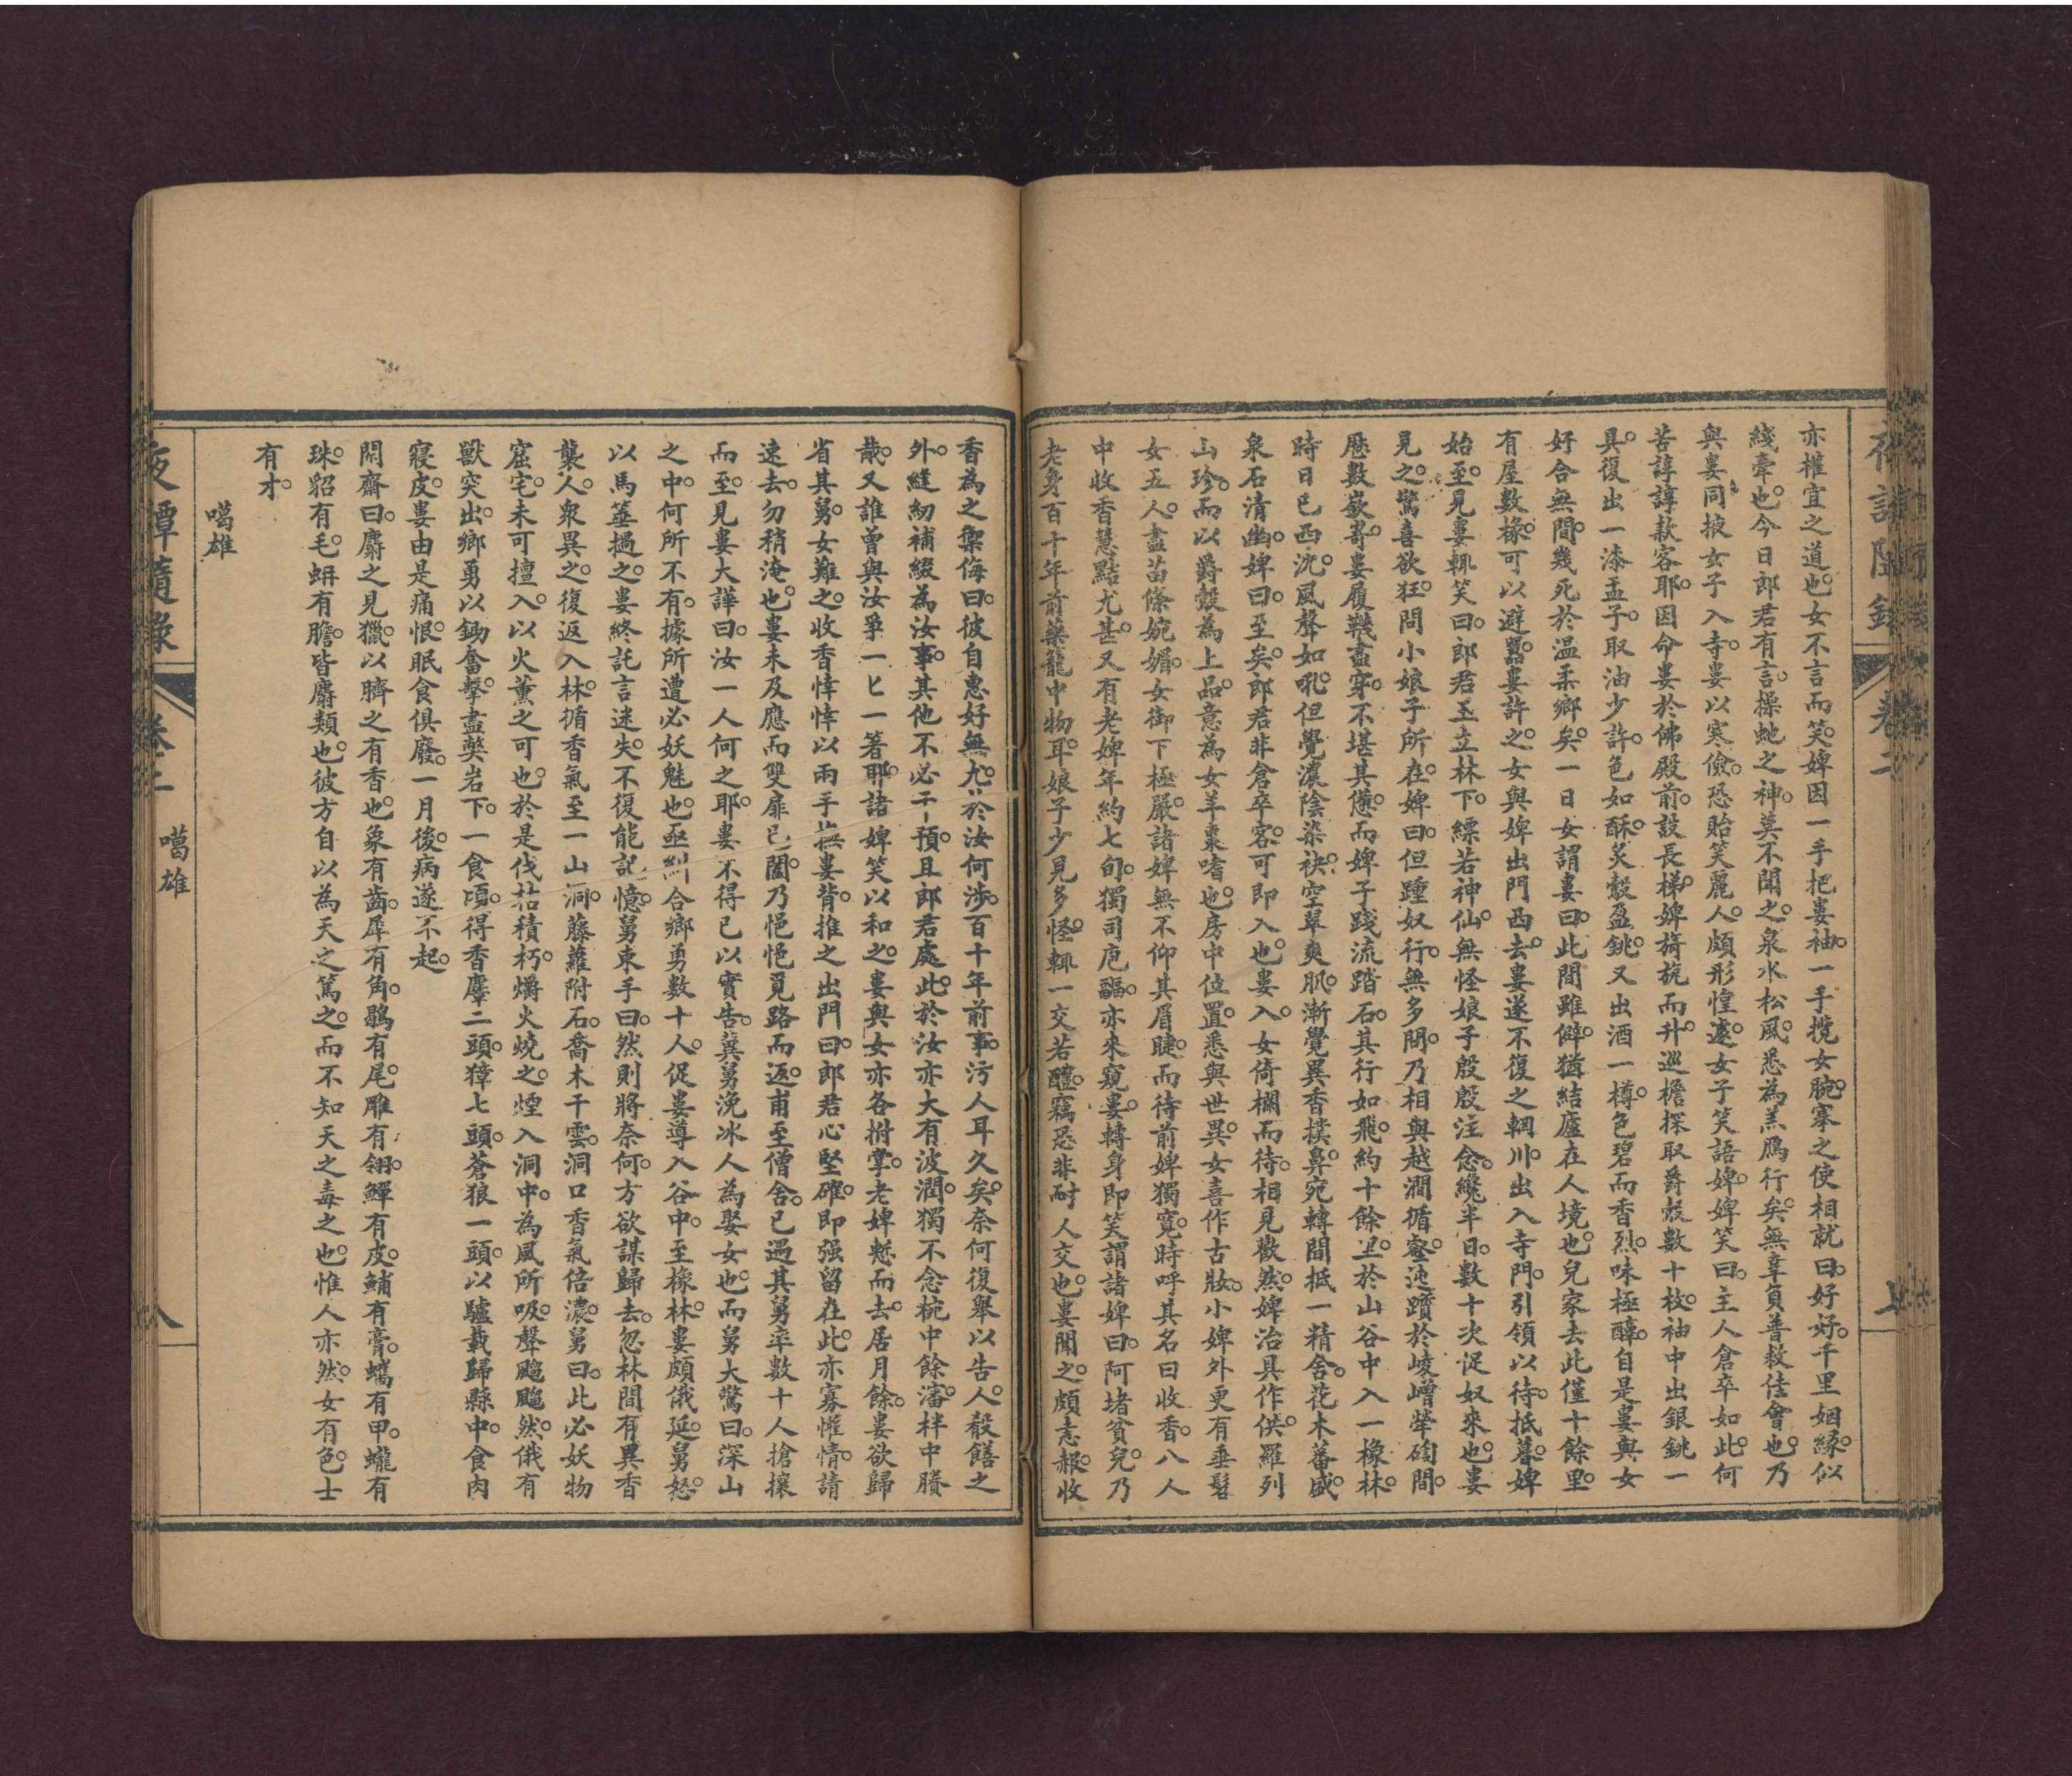 亦權宜之道也。女不言而笑。婢因一手把婁袖。一手攬女腕。搴之使相就。曰。好好。千里姻緣。似
綫牽也。今日郎君有言。操虵之神。莫不聞之。泉水松風。悉為羔鴈行矣。無辜負普救佳會也。乃
與婁同掖女子入寺。婁以寒儉。恐貽笑麗人。頗形惶遽。女子笑語婢。婢笑曰。主人倉卒如此。何
苦諄諄款客耶。因命婁於佛殿前。設長梯。婢旖旎而升。巡檐探取爵鷇數十枚。袖中出銀銚一
具。復出一漆盂子。取油少許。色如酥。炙鷇盈銚。又出酒一樽。色碧而香烈。味極醇。自是婁與女
好合無間。幾死於温柔鄉矣。一日女謂婁曰。此間雖僻。猶結廬在人境也。兒家去此僅十餘里。
有屋數椽。可以避囂。婁許之。女與婢出門西去。婁遂不復之輞川。出入寺門。引領以待。抵暮。婢
始至。見婁輒笑曰。郎君玉立林下。縹若神仙。無怪娘子殷殷注念。纔半日。數十次促奴來也。婁
見之。驚喜欲狂。問小娘子所在。婢曰。但踵奴行。無多問。乃相與越澗循窓。迤躓於崚嶒犖确間。
歷數嶔嵜。婁履韈盡穿。不堪其憊。而婢子踐流踏石。其行如飛。約十餘里。於山谷中入一橡林。
時日已西沈。風聲如吼。但覺濃陰染袂。空翠爽肌。漸覺異香撲鼻。宛轉間抵一精舍。花木蕃盛。
泉石清幽。婢曰。至矣。郎君非倉卒客。可即入也。婁入。女倚欄而待。相見歡然。婢治具作供。羅列
山珍。而以爵鷇為上品。意為女羊棗嗜也。房中位置。悉與世異。女喜作古妝。小婢外更有垂髫
女五人。盡苗條婉媚。女御下極嚴。諸婢無不仰其眉睫。而待前婢獨寬。時呼其名曰收香。八人
中收香慧黠尤甚。又有老婢年約七旬。獨司庖湢。亦來窺婁。轉身即笑謂諸婢曰。阿堵貧兒。乃
老身百十年前藥籠中物耳。娘子少見多怪。輒一交若醴。竊恐非耐人交也。婁聞之。頗恚赧。收
香為之禦侮曰。彼自惠好無尤。於汝何涉。百十年前事。污人耳久矣。奈何復舉以告人。殽饍之
外。縫紉補綴為汝事。其他不必干預。且郎君處此。於汝亦大有波潤。獨不念椀中餘瀋。柈中賸
胾。又誰曾與汝爭一匕一箸耶。諸婢笑以和之。婁與女亦各拊掌。老婢慙而去。居月餘。婁欲歸
省其舅。女難之。收香悻悻以兩手撫婁背。推之出門曰。郎君心堅確。即强留在此。亦寡懽情。請
速去。勿稍淹也。婁未及應。而雙扉已闔。乃悒悒覓路而返。甫至僧舍。已過其舅率數十人搶攘
而至。見婁大譁曰。汝一人何之耶。婁不得已以實告。冀舅浼冰人為娶女也。而舅大驚曰。深山
之中。何所不有。據所遭必妖魅也。亟糾合鄉勇數十人。促婁導入谷中。至橡林。婁頗俄延。舅怒。
以馬箠撾之。婁終託言迷失。不復能記憶。舅束手曰。然則將奈何。方欲謀歸去。忽林間有異香
襲人。衆異之。復返入林。循香氣至一山洞。藤蘿附石。喬木干雲。洞口香氣倍濃。舅曰。此必妖物
窟宅。未可擅入。以火薰之可也。於是伐枯積朽。爝火燒之。煙入洞中。為風所吸。聲颼颼然。俄有
獸突出。鄉勇以鋤奮擊。盡斃岩下。一食頃。得香麞二頭。獐七頭。蒼狼一頭。以驢載歸縣中。食肉
寢皮。婁由是痛恨。眠食俱廢。一月後。病遂不起。
閑齋曰。麝之見獵。以臍之有香也。象有齒。犀有角。鷸有尾。雕有翎。鱓有皮。鯆有膏。蠵有甲。蠬有
珠。貂有毛。蚺有膽。皆麝類也。彼方自以為天之篤之。而不知天之毒之也。惟人亦然。女有色。士
有才。
噶雄
夜譚隨錄
卷二
噶雄
八